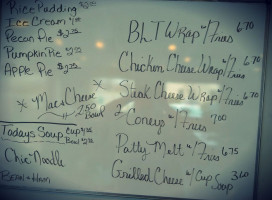 Rice Pudding
Ice Cream
Pecan Pie $2.25
Pumpkin Pie $2
Apple Pie $2.25
x Mac & Cheese x
2.50 Bowl
Todays Soup Cup
Bowl
Chic Noodle
Bean & Ham
BLT Wrap w/ Fries 6.70
Chicken Cheese Wrap w/ Fries 6.70
Steak Cheese Wrap w/ Fries 6.70
2 Coneys w/ Fries 7.00
Patty Melt w/ Fries 6.75
Grilled Cheese w/ Cup Soup